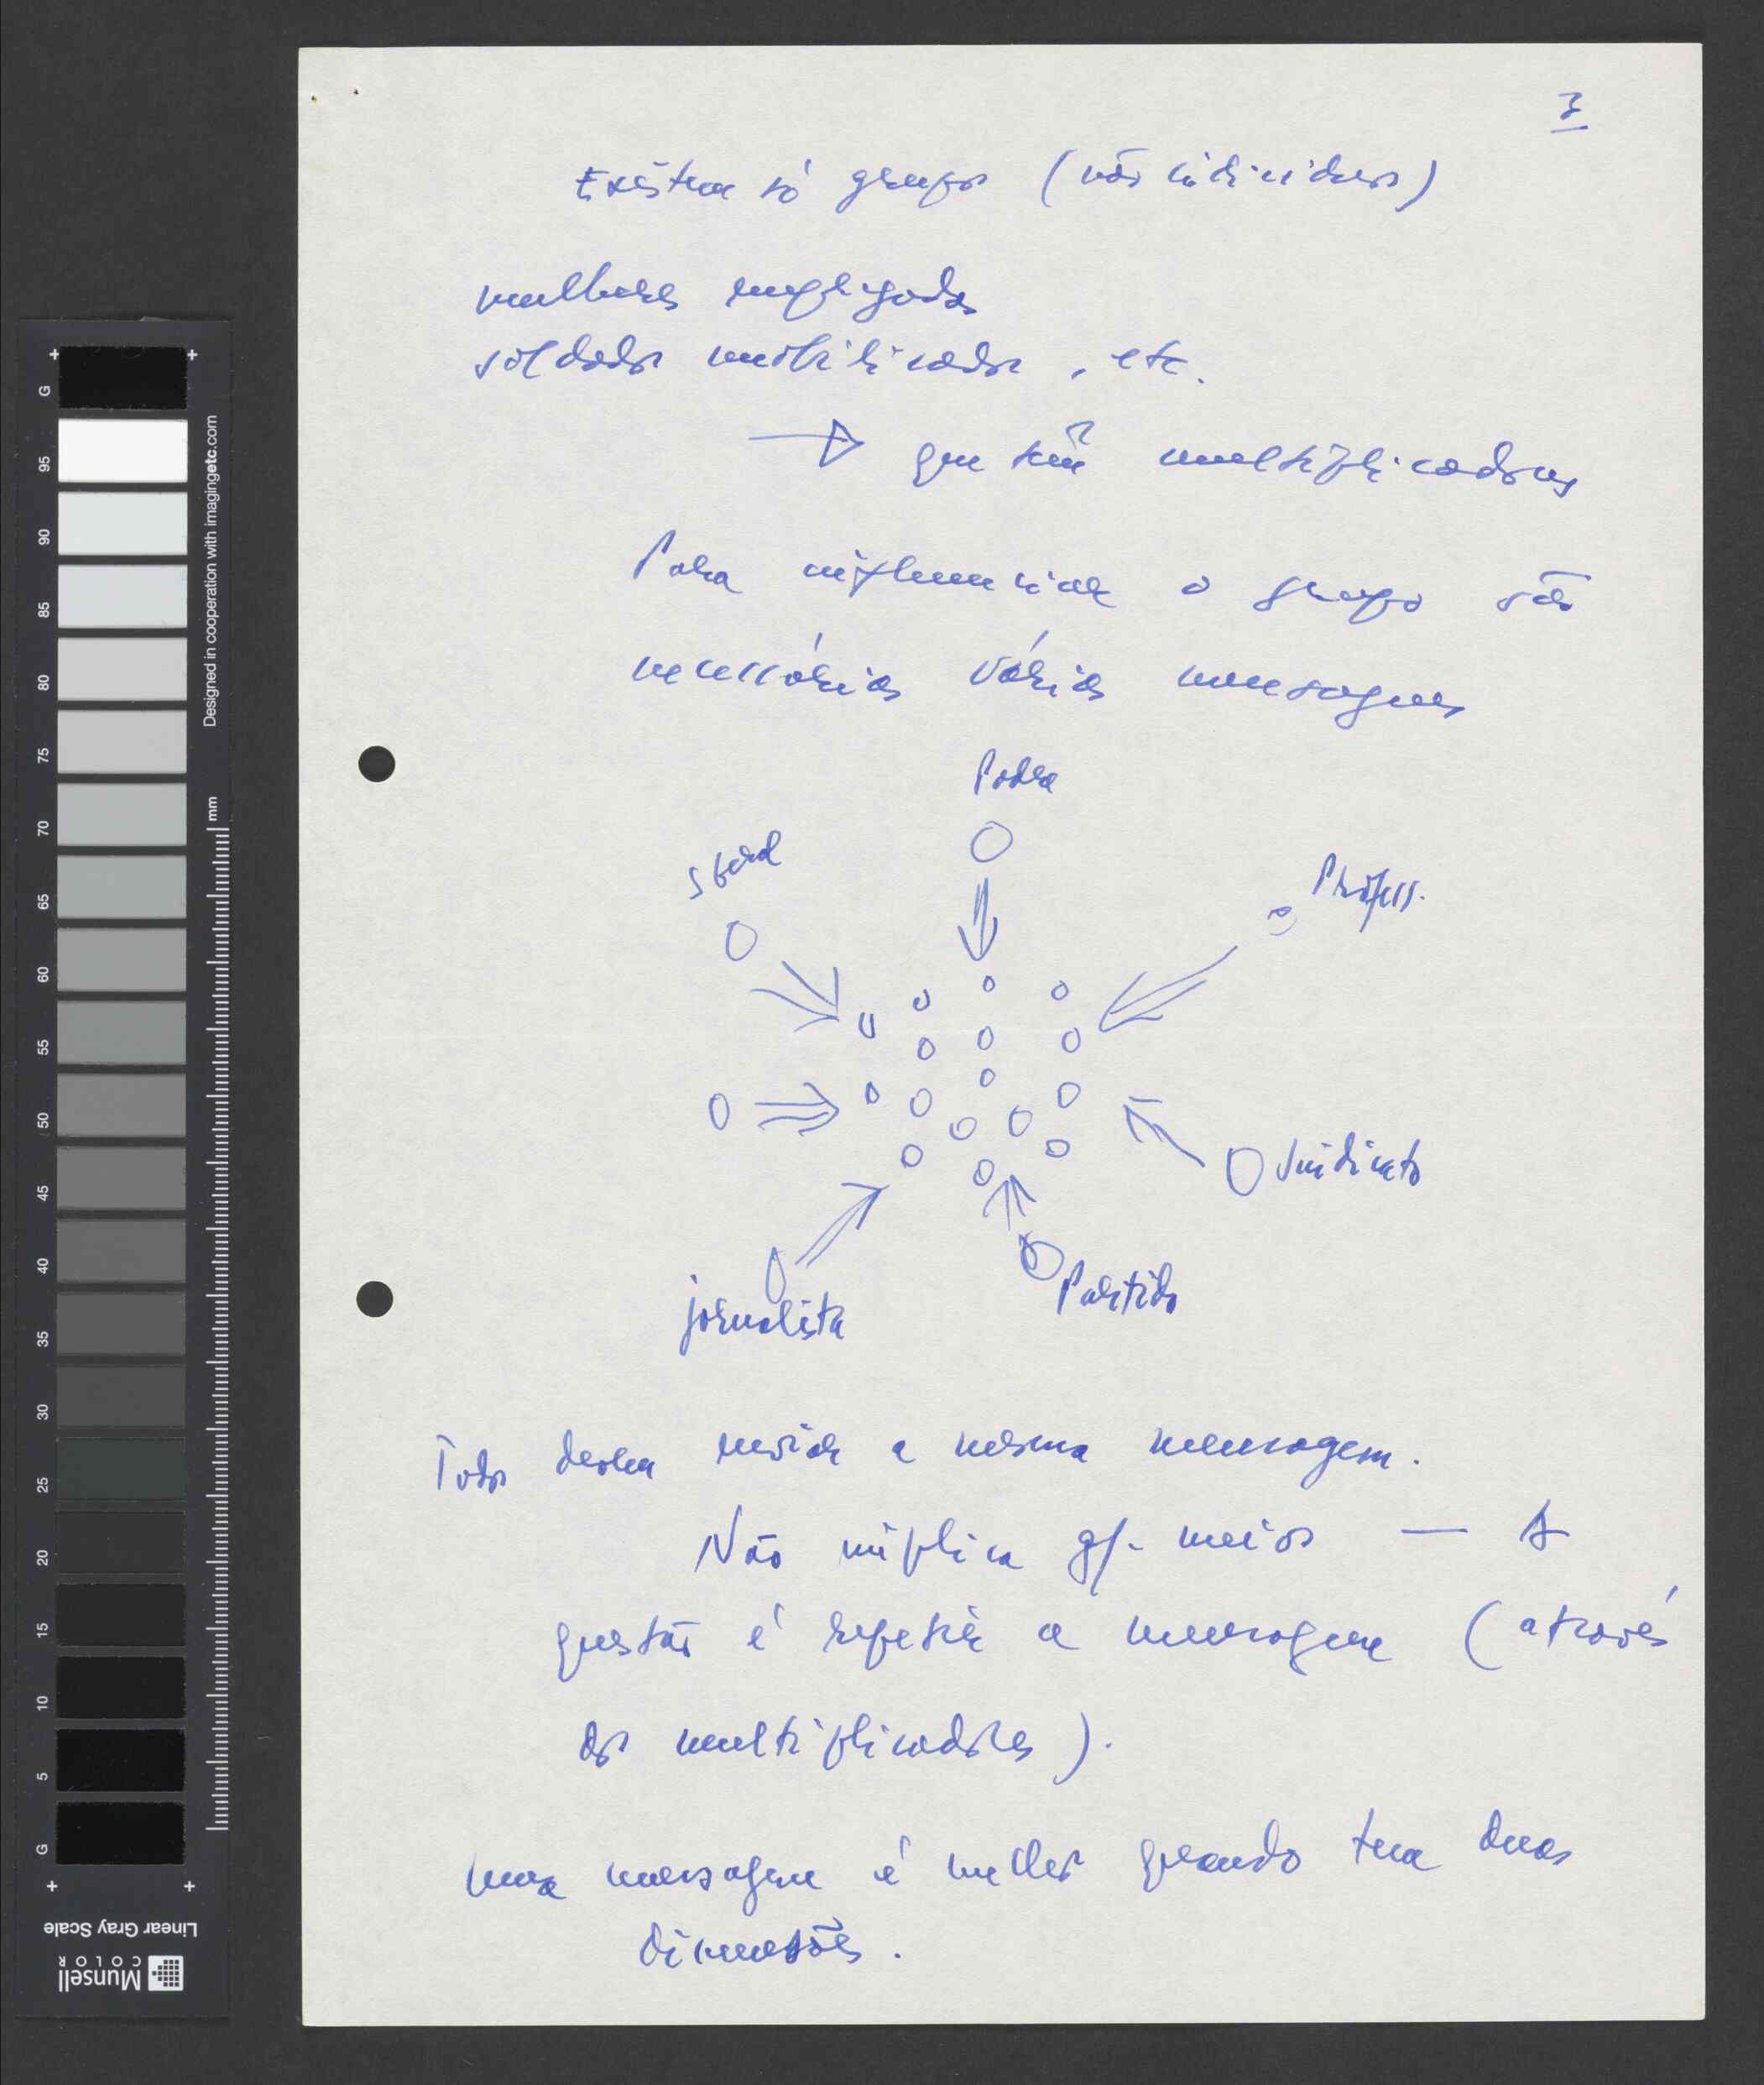 3
Existem só grupos (não indivíduos)
mulheres empregadas
soldados mobilizados, etc.
que têm multiplicadores
Para influenciar o grupo são
necessárias várias mensagens
Padre
Profess.
Sindicato
Partido
jornalista
Todos devem enviar a mesma mensagem.
Não implica gf. meios — A
questão é repetir a mensagem (através
dos multiplicadores).
uma mensagem é melhor quando tem duas
dimensões.
G
95
90
85
80
75
70
65
60
55
50
45
40
35
30
25
20
15
10
5
G
Designed in cooperation with imagingetc.com
mm
Linear Gray Scale
Munsell
COLOR